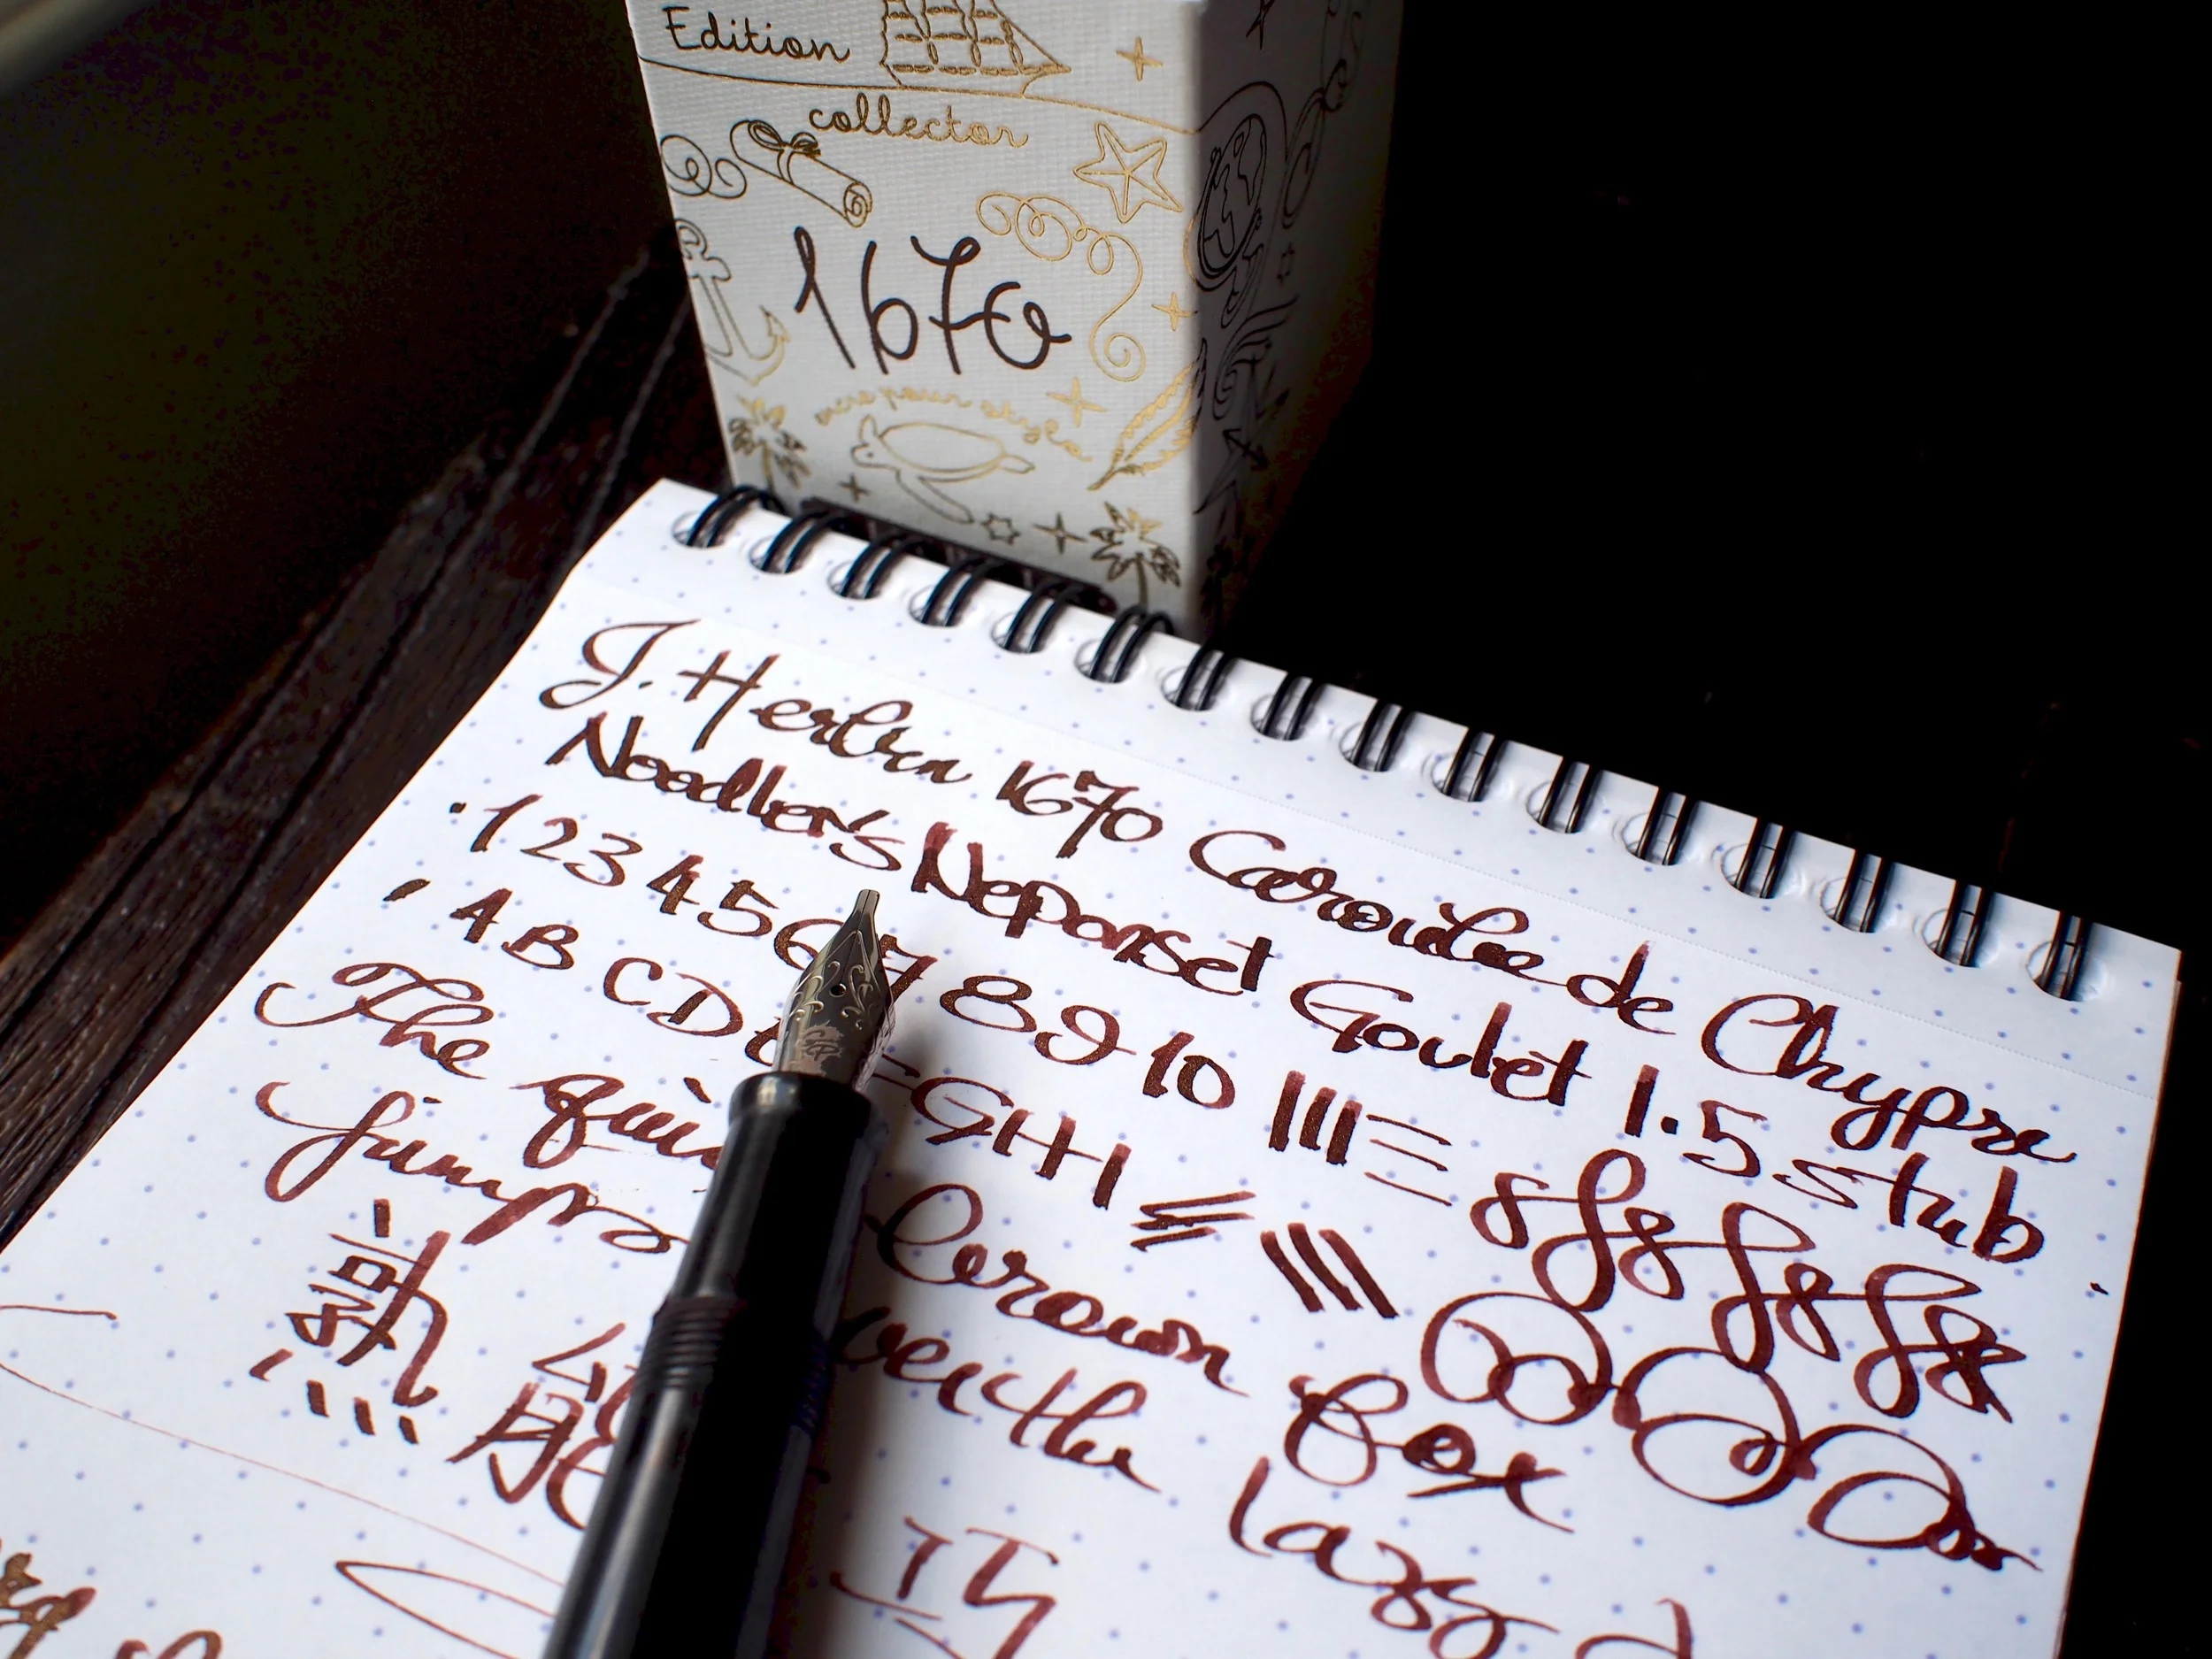 Edition
collector
1670
encre pour stylo
J. Herbin 1670 Caroube de Chypre
Noodler's Neponset Goulet 1.5 stub
1 2 3 4 5 6 7 8 9 10
A B C D G H I
The brown fox
jumps the lazy
熱 能
巧